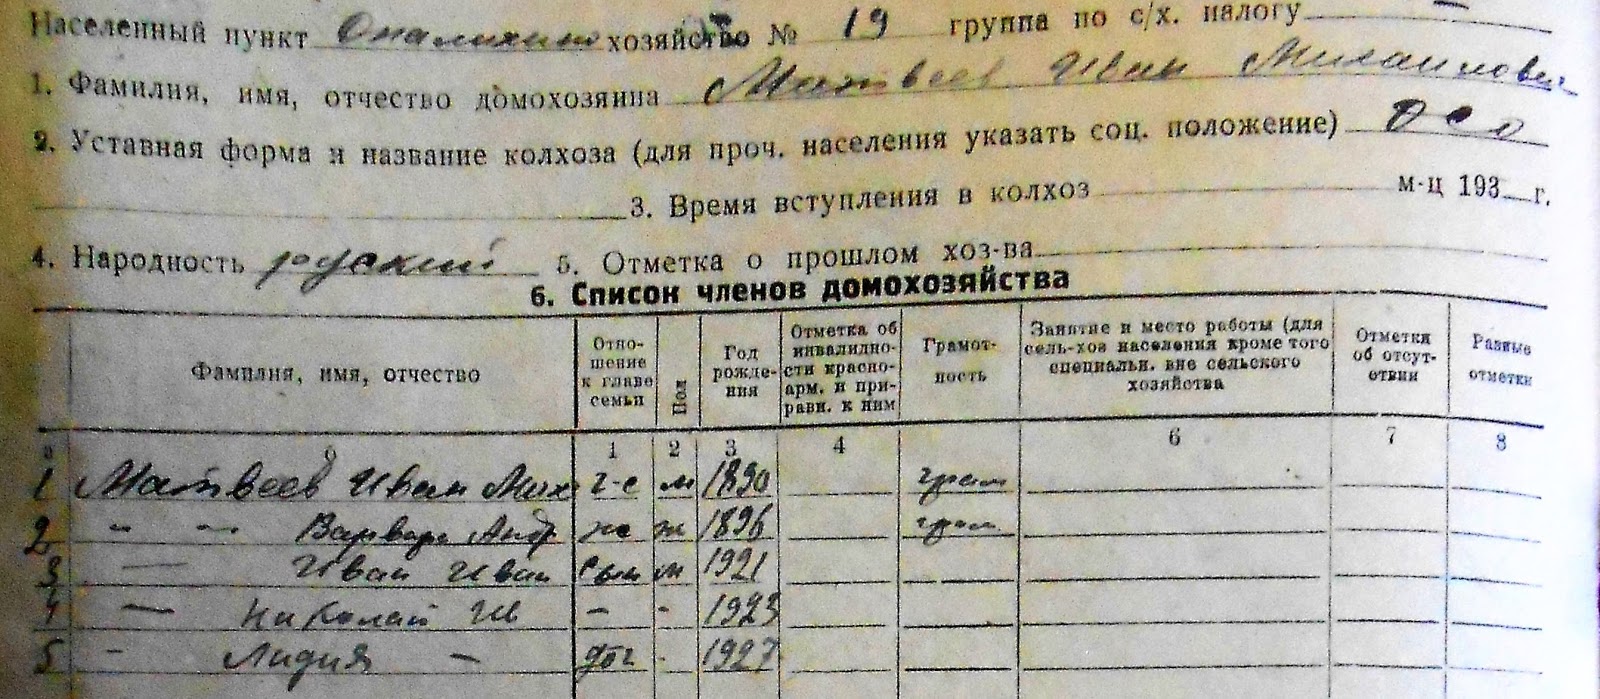 Населенный пункт Опалихино хозяйство № 19 группа по с/х. налогу
1. Фамилия, имя, отчество домохозяина Матвеев Иван Михаилович
2. Уставная форма и название колхоза (для проч. населения указать соц. положение)
3. Время вступления в колхоз м-ц 193 г.
4. Народность руский 5. Отметка о прошлом хоз-ва
6. Список членов домохозяйства
Фамилия, имя, отчество Отно-шение к главе семьи Пол Год рожде-ния Отметка об инвалидно-сти красно-арм. и при-равн. к ним Грамот-ность Занятие и место работы (для сель-хоз населения кроме того специальн. вне сельского хозяйства Отметки об отсут-ствии Разные отметки
а 1 2 3 4 6 7 8
1 Матвеев Иван Мих г-с м 1890 грам
2 " " Варвара Андр же ж 1896 грам
3 — Иван Иван сын м 1921
4 — Николай Ив - - 1923
5 - Лидия — доч - 1927